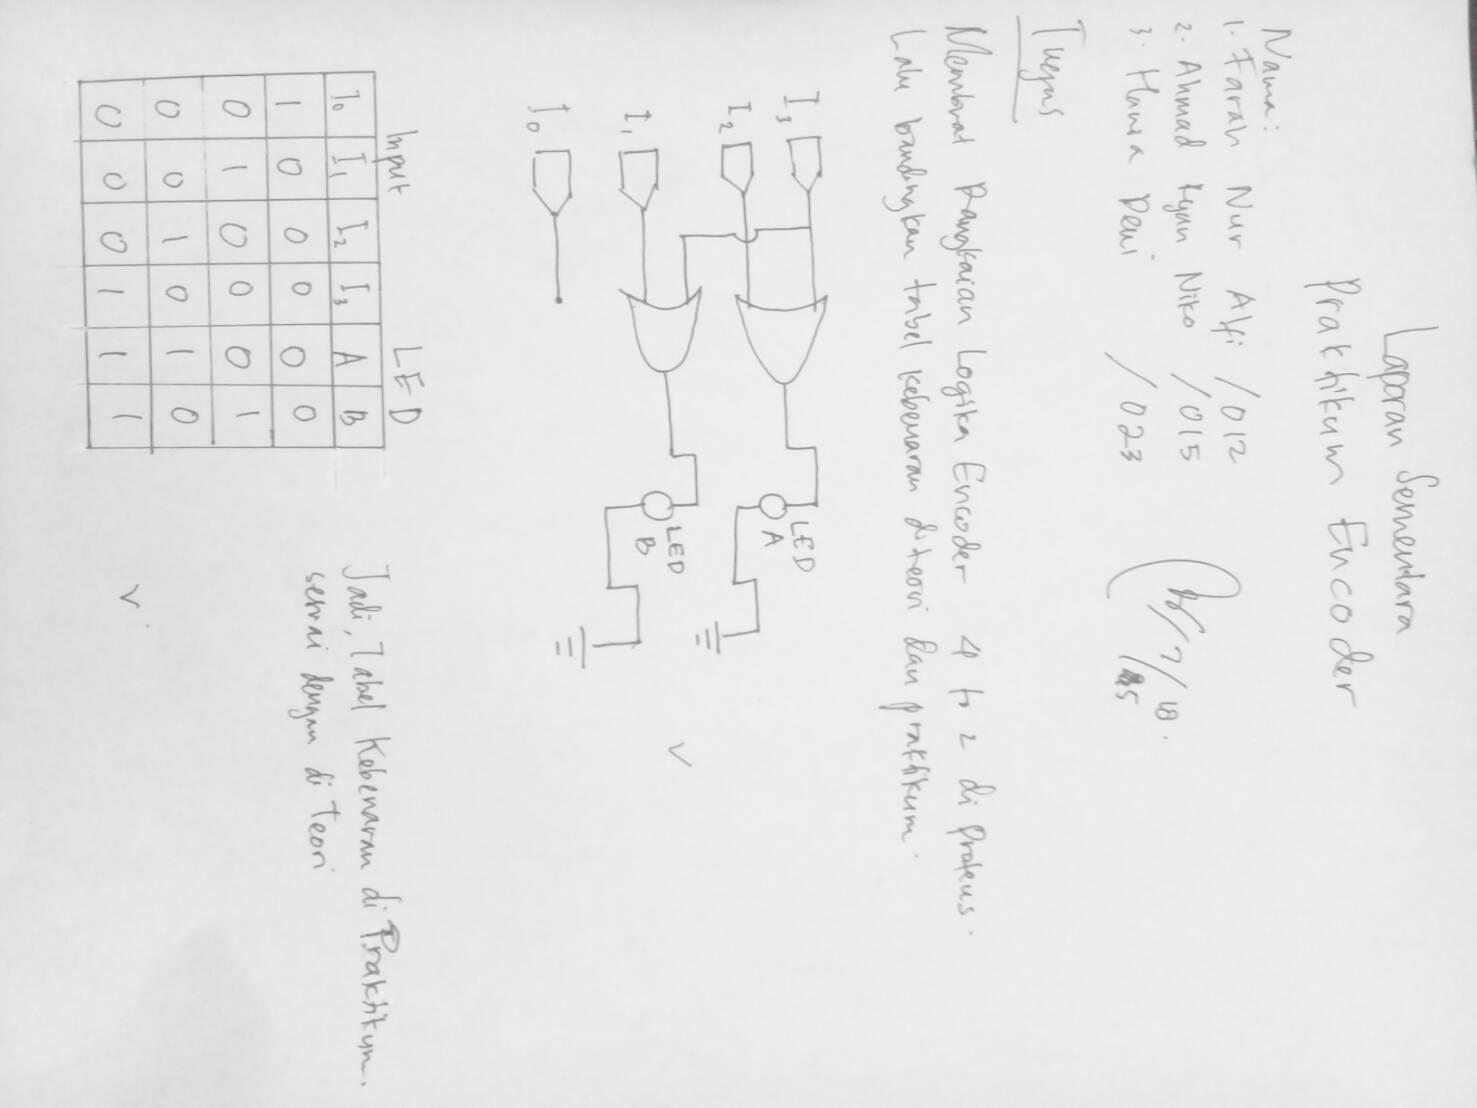 Laporan Sementara
Praktikum Encoder
Nama:
1. Farah Nur Alfi /012
2. Ahmad Ryan Niko /015
3. Hanna Dewi /023
Tugas
Membuat Rangkaian Logika Encoder 4 to 2 di Proteus.
Lalu bandingkan tabel kebenaran di teori dan praktikum.
I3
I2
I1
I0
LED
A
LED
B
Input LED
I0 I1 I2 I3 A B
1 0 0 0 0 0
0 1 0 0 0 1
0 0 1 0 1 0
0 0 0 1 1 1
Jadi, Tabel Kebenaran di Praktikum.
sesuai dengan di Teori